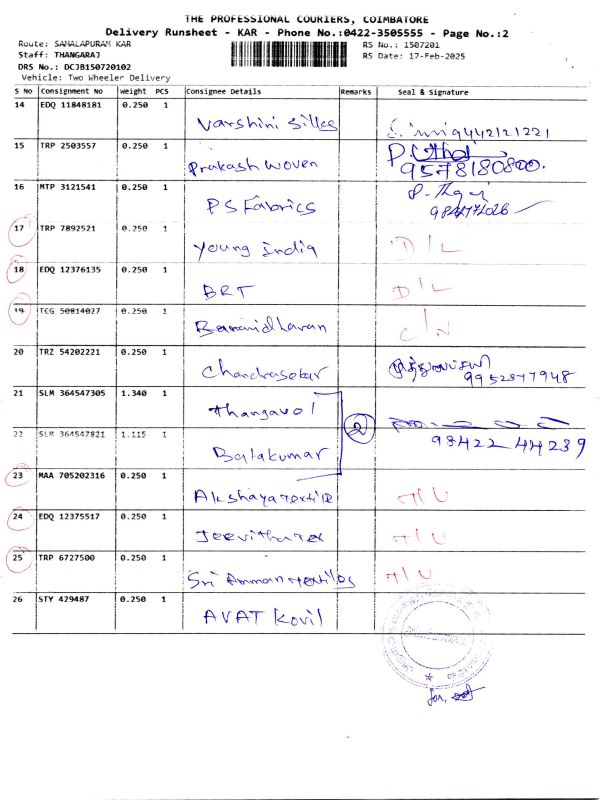 THE PROFESSIONAL COURIERS, COIMBATORE
Delivery Runsheet - KAR - Phone No.:0422-3505555 - Page No.:2
Route: SAMALAPURAM KAR RS No.: 1507201
Staff: THANGARAJ RS Date: 17-Feb-2025
DRS No.: DCJB150720102
Vehicle: Two Wheeler Delivery
S No Consignment No Weight PCS Consignee Details Remarks Seal & Signature
14 EDQ 11848181 0.250 1
Varshini Silks 9442121221
15 TRP 2503557 0.250 1
Prakash Woven 9578180800
16 MTP 3121541 0.250 1
PS Fabrics
17 TRP 7892521 0.250 1
Young India D/L
18 EDQ 12376135 0.250 1
BRT D/L
19 TCG 50814027 0.250 1
Baranidharan C/N
20 TRZ 54202221 0.250 1
Chandrasekar
21 SLM 364547305 1.340 1
Thangavel
2
22 SLM 364547821 1.115 1
Balakumar 98422 44239
23 MAA 705202316 0.250 1
Akshaya textile
24 EDQ 12375517 0.250 1
Jeevitha tex
25 TRP 6727500 0.250 1
Sri Amman textiles
26 STY 429487 0.250 1
AVAT Kovil
for,